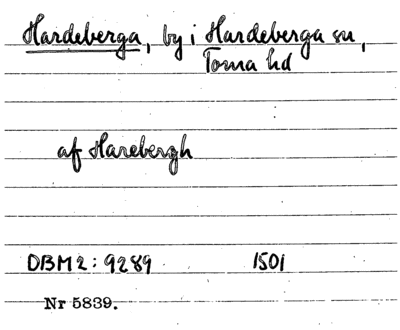 Hardeberga, by i Hardeberga sn,
Torna hd
af Harebergh
DBM2: 9289 1501
Nr 5839.